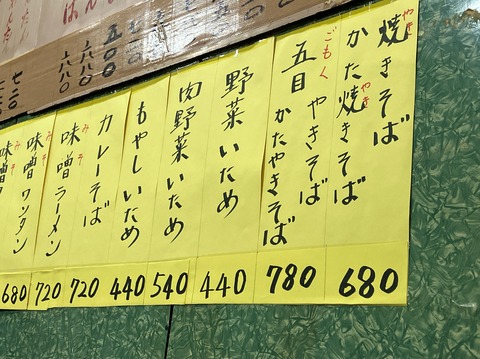 焼きそば
やき
かた焼きそば
やき
680
五目
ごもく
やきそば
かたやきそば
780
野菜いため
440
肉野菜いため
540
もやしいため
440
カレーそば
720
味噌ラーメン
みそ
720
味噌ワンタン
みそ
680
味噌
みそ
五〇〇
六八〇
六八〇
七二〇